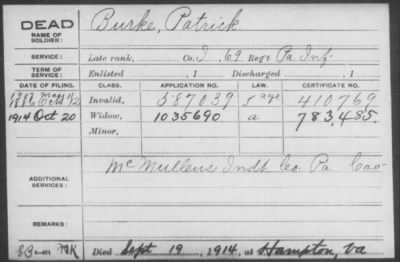 DEAD
NAME OF SOLDIER:
Burke, Patrick
SERVICE:
Late rank, Co. I, 69 Reg't Pa Inf
TERM OF SERVICE:
Enlisted , 1 Discharged , 1
DATE OF FILING. CLASS. APPLICATION NO. LAW. CERTIFICATE NO.
Invalid, 587039 410769
1914 Oct 20 Widow, 1035690 a 783,485.
Minor,
ADDITIONAL SERVICES:
Mc Mullens Indt Co Pa Cav
REMARKS:
Died Sept 19, 1914, at Hampton, Va